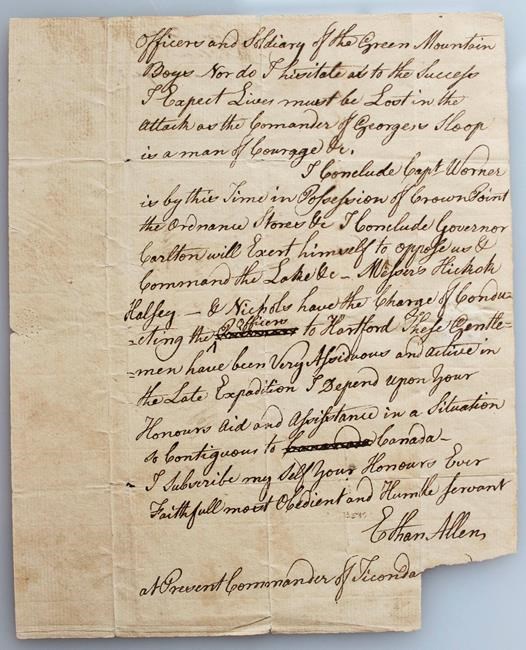 Officers and Soldiary of the Green Mountain
Boys Nor do I hesitate as to the Success
I Expect Lives must be Lost in the
attack as the Comander of Georges's Sloop
is a man of Courage &c.
I Conclude Capt Worner
is by this Time in Possession of Crown Point
the Ordnance Stores &c I Conclude Governor
Carlton will Exert himself to oppose us &
Command the Lake &c – Messrs Hickok
Halsey – & Nichols have the Charge of Condu-
-cting the Officers to Hartford These Gentle-
-men have been Very Assiduous and active in
the Late Expadition I Depend upon Your
Honours Aid and Assistance in a Situation
so Contiguous to Canada –
I Subscribe my Self Your Honours Ever
Faithfull most Obedient and Humble Servant
Ethan Allen
at Present Commander of Ticonda